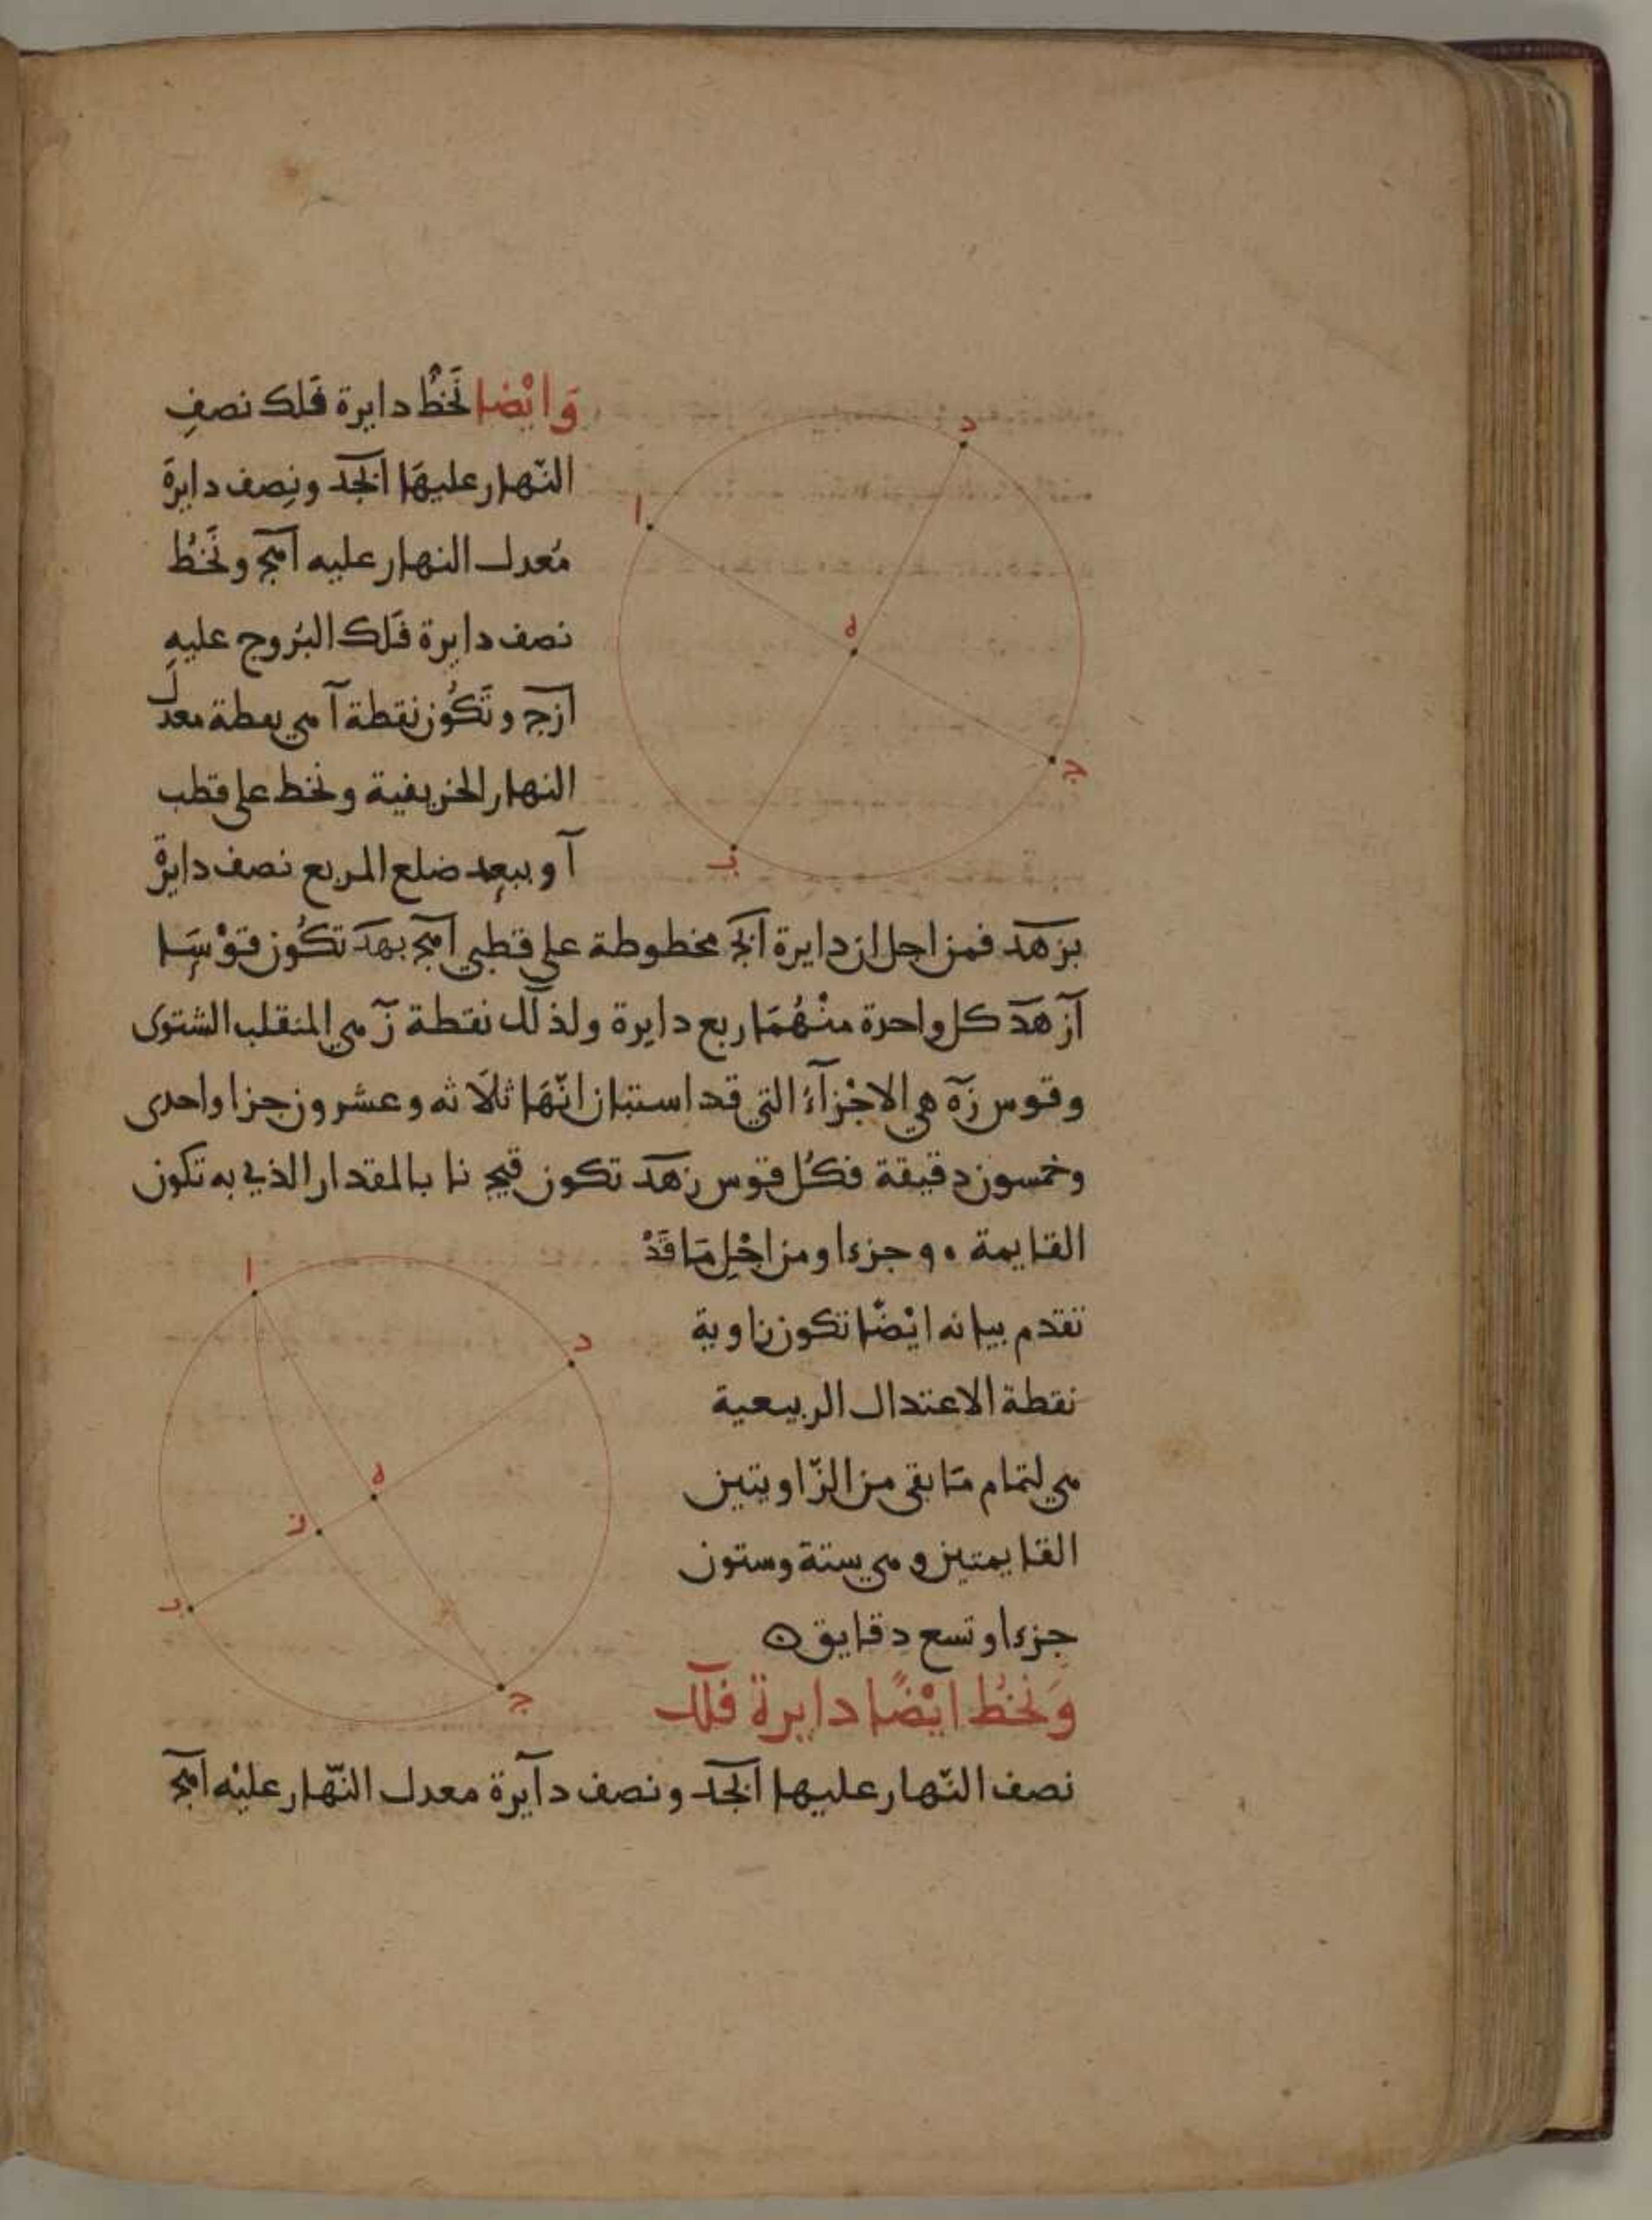 وَايْضا نَخُطُّ دايرة فَلك نصفِ
النّهار عليهَا ابجد ونِصف دايرةَ
مُعدل النهار عليه اهج ونَخُط
نصف دايرة فَلك البُروج عليهِ
ازج وتَكُون نقطة آ هي نقطة معدل
النهار الخريفية ونخط على قطب
آ وببعد ضلع المربع نصف دايرة
بزهد فمن اجل ان دايرة ابج مخطوطة على قطبي اهج بهد تكُون قوْسَا
آز هد كل واحدة منْهُمَا ربع دايرة ولذلك نقطة زَ هي المنقلب الشتوى
وقوس زه هي الاجْزآءُ التي قد استبان انّهَا ثلَاثه وعشرون جزا واحدى
وخمسون دقيقة فكُل قوس زهد تكون قيج نا بالمقدار الذي به تكون
القايمة ٩٠ جزءا ومن اجْلِ مَا قَدْ
تقدم بيانه ايْضًا تكون زاوية
نقطة الاعتدال الربيعية
هي لتمام مَا بقى من الزّاويتين
القايمتين وهي ستة وستون
جزءا وتسع دقايق ه
وَنخُط ايْضًا دايرة فلك
نصف النّهار عليها ابجد ونصف دآيرة معدل النّهار عليْه اهج
د
ا
ه
ج
ب
ا
د
ه
ز
ب
ج